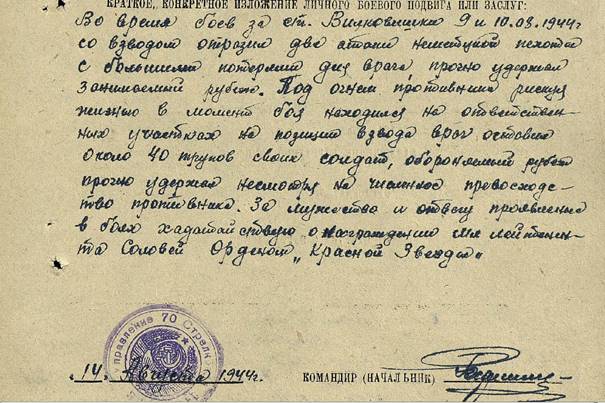 КРАТКОЕ, КОНКРЕТНОЕ ИЗЛОЖЕНИЕ ЛИЧНОГО БОЕВОГО ПОДВИГА ИЛИ ЗАСЛУГ:
Во время боев за ст. Вилковишки 9 и 10.08.1944 г
со взводом отразил две атаки немецкой пехоты
с большими потерями для врага, прочно удержал
занимаемый рубеж. Под огнем противника рискуя
жизнью в момент боя находился на ответствен-
ных участках на позиции взвода враг оставил
около 40 трупов своих солдат, обороняемый рубеж
прочно удержал несмотря на численное превосходс-
тво противника. За мужество и отвагу проявленные
в боях ходатайствую о награждении мл лейтенан-
та Соловей Орденом „Красной Звезды"
управление 70 Стрелк
„14" Августа 1944г.
КОМАНДИР (НАЧАЛЬНИК)